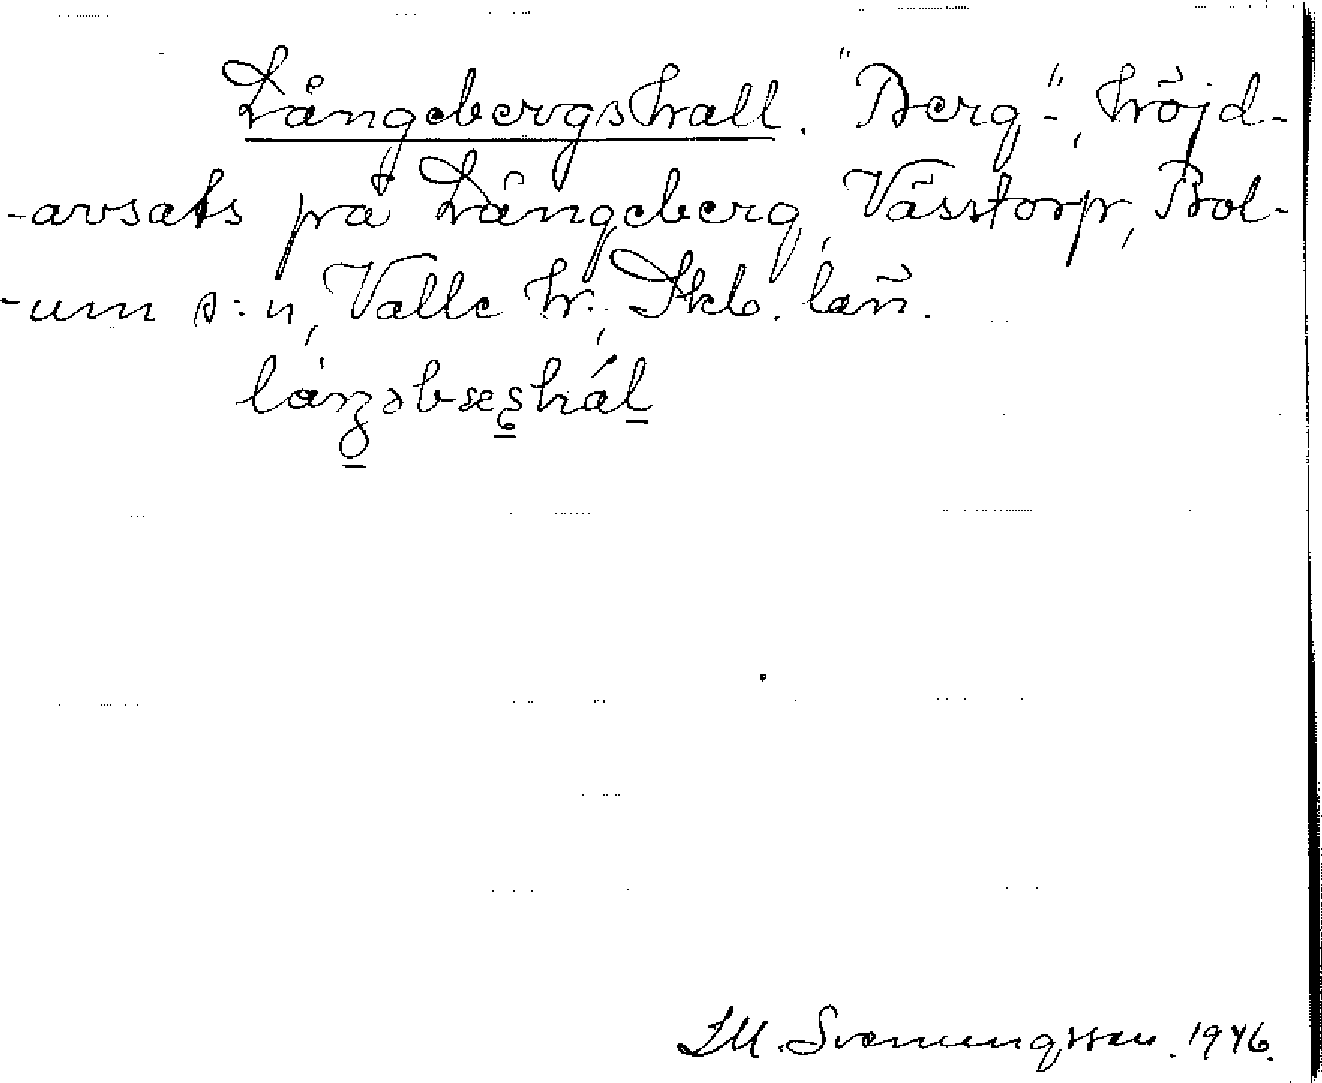 Långebergshall. "Berg-", höjd-
-avsats på Långeberg, Västorp, Bol-
-um s:n, Valle hr., Skb. län.
SM. Svenungsson. 1946.